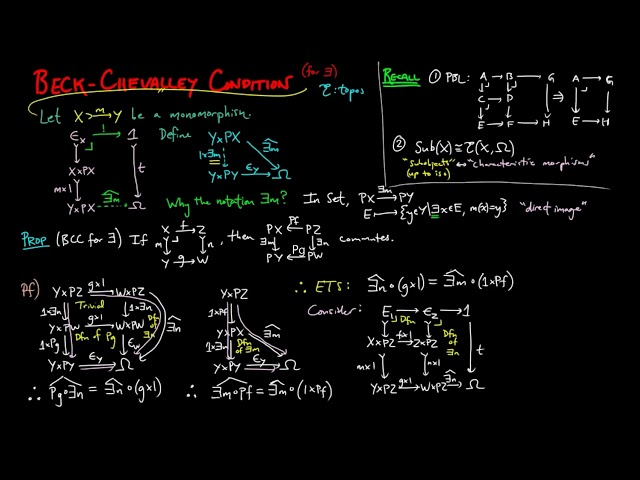 BECK-CHEVALLEY CONDITION (for ∃)
ℰ: topos
Let X >m→ Y be a monomorphism.
∈x → 1
X×PX
m×1
t
Y×PX ∃̂m Ω
Define Y×PX ∃̂m
1×∃m
Y×PY ∈y Ω
Why the notation ∃m?
In Set, PX ∃m→ PY
E ↦ {y∈Y | ∃x∈E, m(x)=y} "direct image"
RECALL ① PBL: A → B → G
C → D
E → F → H
⇒ A → G
E → H
② Sub(X) ≅ ℰ(X, Ω)
"Subobjects" ↔ "characteristic morphisms"
(up to iso)
PROP (BCC for ∃) If X f→ Z
m n
Y g→ W
, then PX Pf← PZ
∃m ∃n
PY Pg← PW
commutes.
Pf)
Y×PZ g×1 W×PZ
1×∃n Trivial 1×∃n Dfn of ∃n ∃̂n
Y×PW g×1 W×PW
1×Pg Dfn of Pg ∈w
Y×PY ∈y Ω
∴ Pg∘∃n^ = ∃̂n∘(g×1)
Y×PZ
1×Pf
Y×PX ∃̂m
1×∃m Dfn of ∃m
Y×PY ∈y Ω
∴ ∃m∘Pf^ = ∃̂m∘(1×Pf)
∴ ETS: ∃̂n∘(g×1) = ∃̂m∘(1×Pf)
Consider: E₁ → ∈z → 1
Dfn
X×PZ f×1 Z×PZ Dfn of ∃n
m×1 n×1 t
Y×PZ g×1 W×PZ ∃̂n Ω